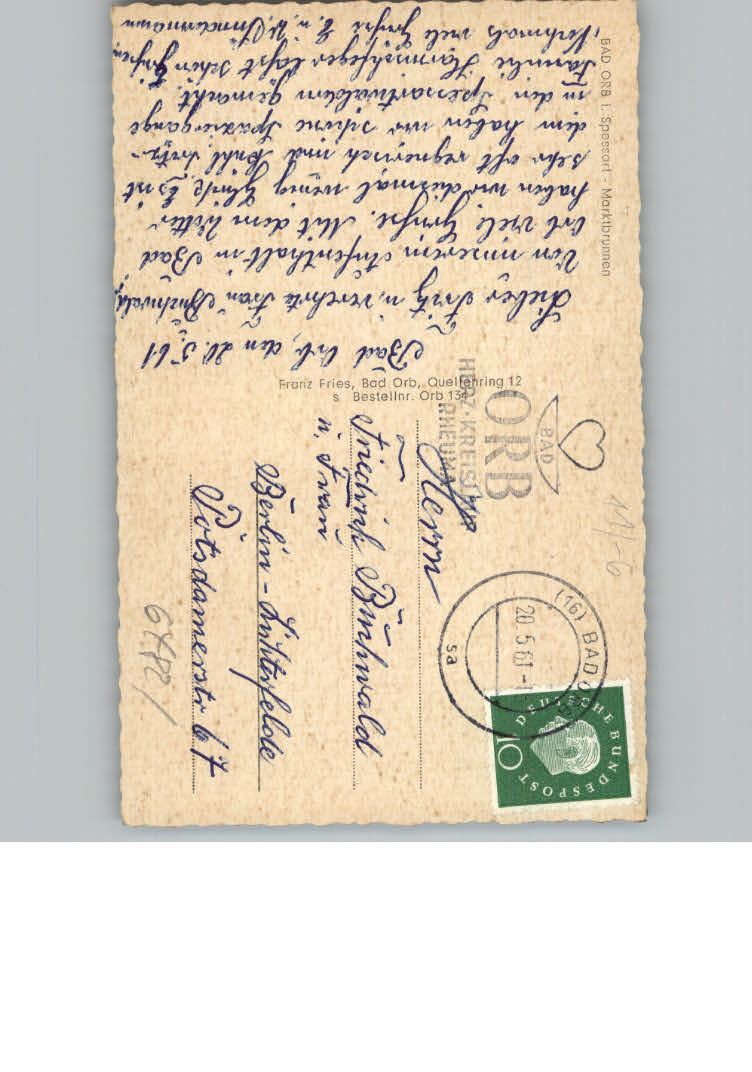 BAD ORB i. Spessart - Marktbrunnen
Bad Orb, den 20.5.61
Lieber Fritz u. verehrte Frau Buchwald,
Von unserem Aufenthalt in Bad
Orb viele Grüße. Mit dem Wetter
haben wir diesmal wenig Glück. Es ist
sehr oft regnerisch und kühl. Trotz-
dem haben wir schöne Spaziergänge
in den Spessartwäldern gemacht.
Familie lässt schön grüßen
Nochmals viele Grüße E. u. W.
Franz Fries, Bad Orb, Quellenring 12
s Bestellnr. Orb 134
BAD
ORB
HERZ-KREISLAUF
RHEUMA
(16) BAD ORB
20.5.61
sa
DEUTSCHE BUNDESPOST
10
Herrn
Friedrich Buchwald
u. Frau
Berlin-Lichterfelde
Potsdamerstr 67